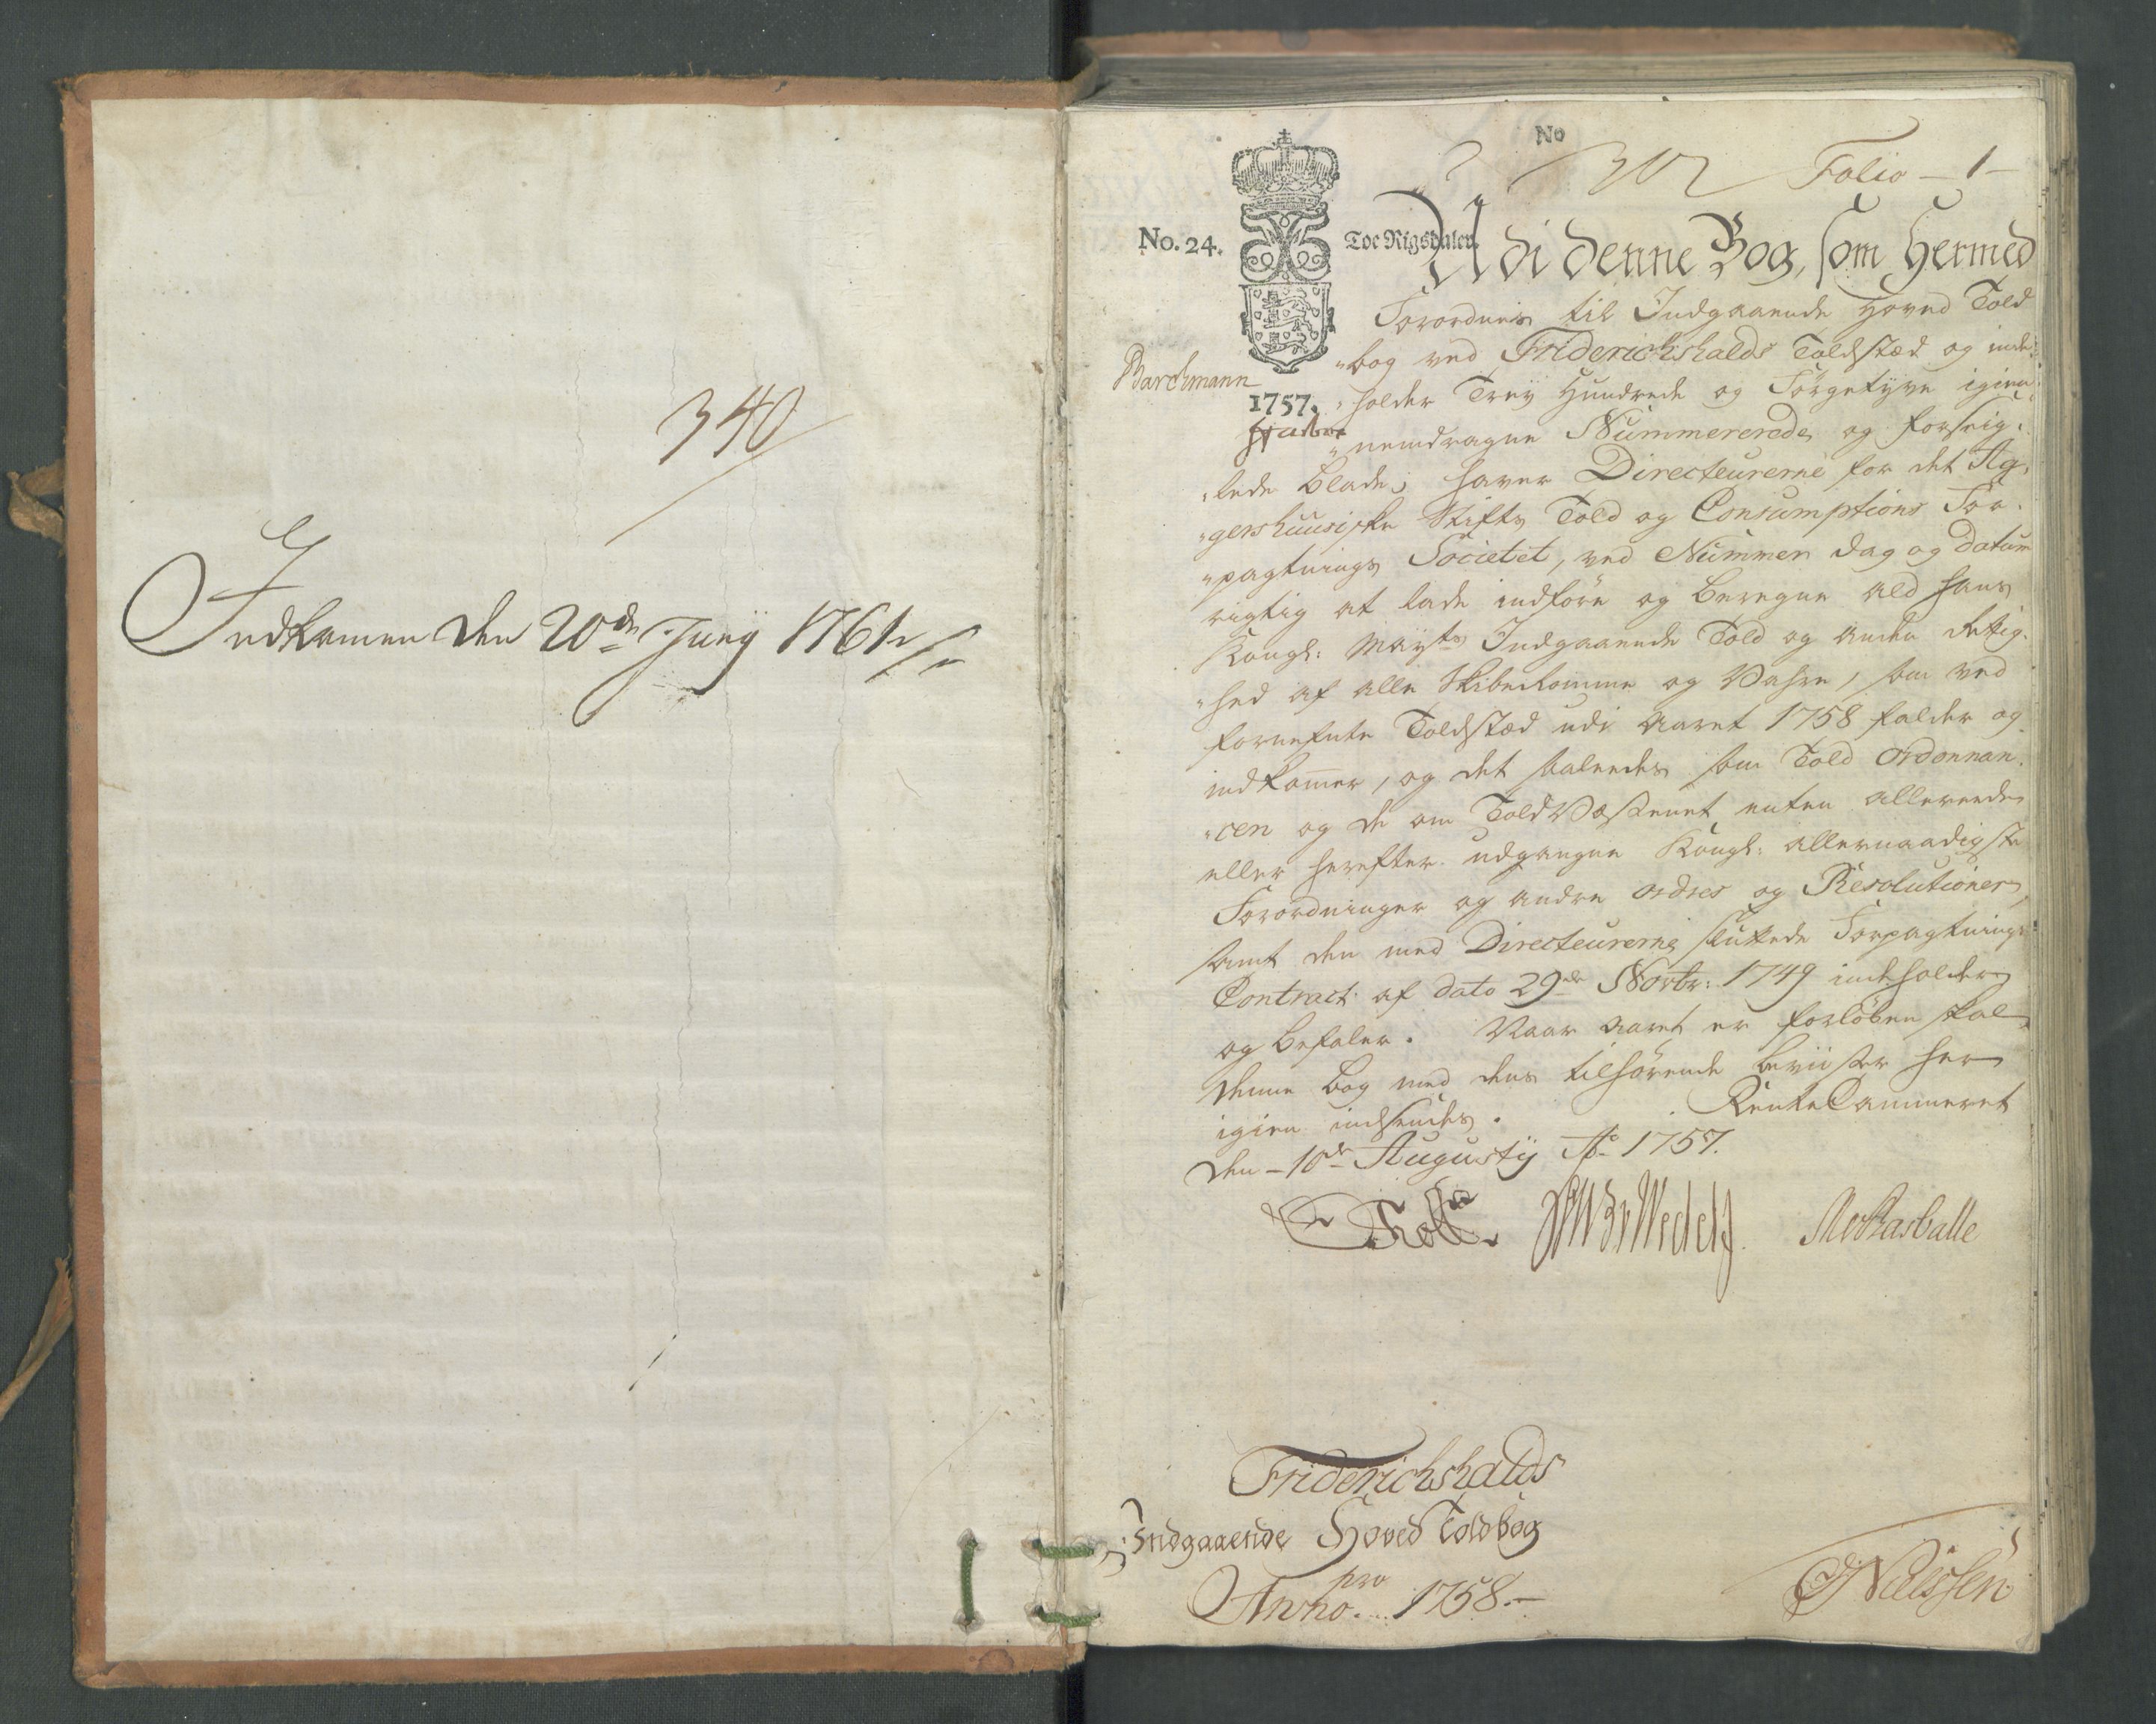 340
Indkommen den 20de Junÿ 1761
No
Folio - 1 -
No. 24.
Toe Rigsdaler.
Udi denne Bog, som Hermed
Forordnes til Indgaaende Hoved Told
bog ved Friderichshalds Toldsted og inde-
Barchmann
1757.
holder Treÿ Hundrede og Förgetÿve igien-
nemdragne Nummererede og forseig-
lede Blade; haver Directeurerne for det Ag-
gershuusiske Stifts Told og Consumptions For-
pagtnings Societet, ved Nummer dag og datum
rigtig at lade indföre og beregne ald hans
Kongl: Maÿts Indgaaende Told og anden Rettig-
hed af alle Skibe Komme og Vahre, som ved
fornefnte Toldsted udi Aaret 1758 falder og
indkom̄er, og det saaledes som Told Ordonnan-
cen og de om Told Væsenet enten allereede
eller herefter udgangne Kongl: allernaadigste
Forordninger og andre ordres og Resolutioner,
samt den med Directeurerne sluttede Forpagtnings
Contract af dato 29de Novbr: 1749 indeholder
og befaler. Naar Aaret er forlöben skal
denne bog med dens tilhörende beviiser her
igien indsendes. RenteCammeret
den 10de Augustÿ Ao 1757.
Friderichshalds
Indgaaende Hoved Toldbog
pro
Anno 1758.
Nielssen